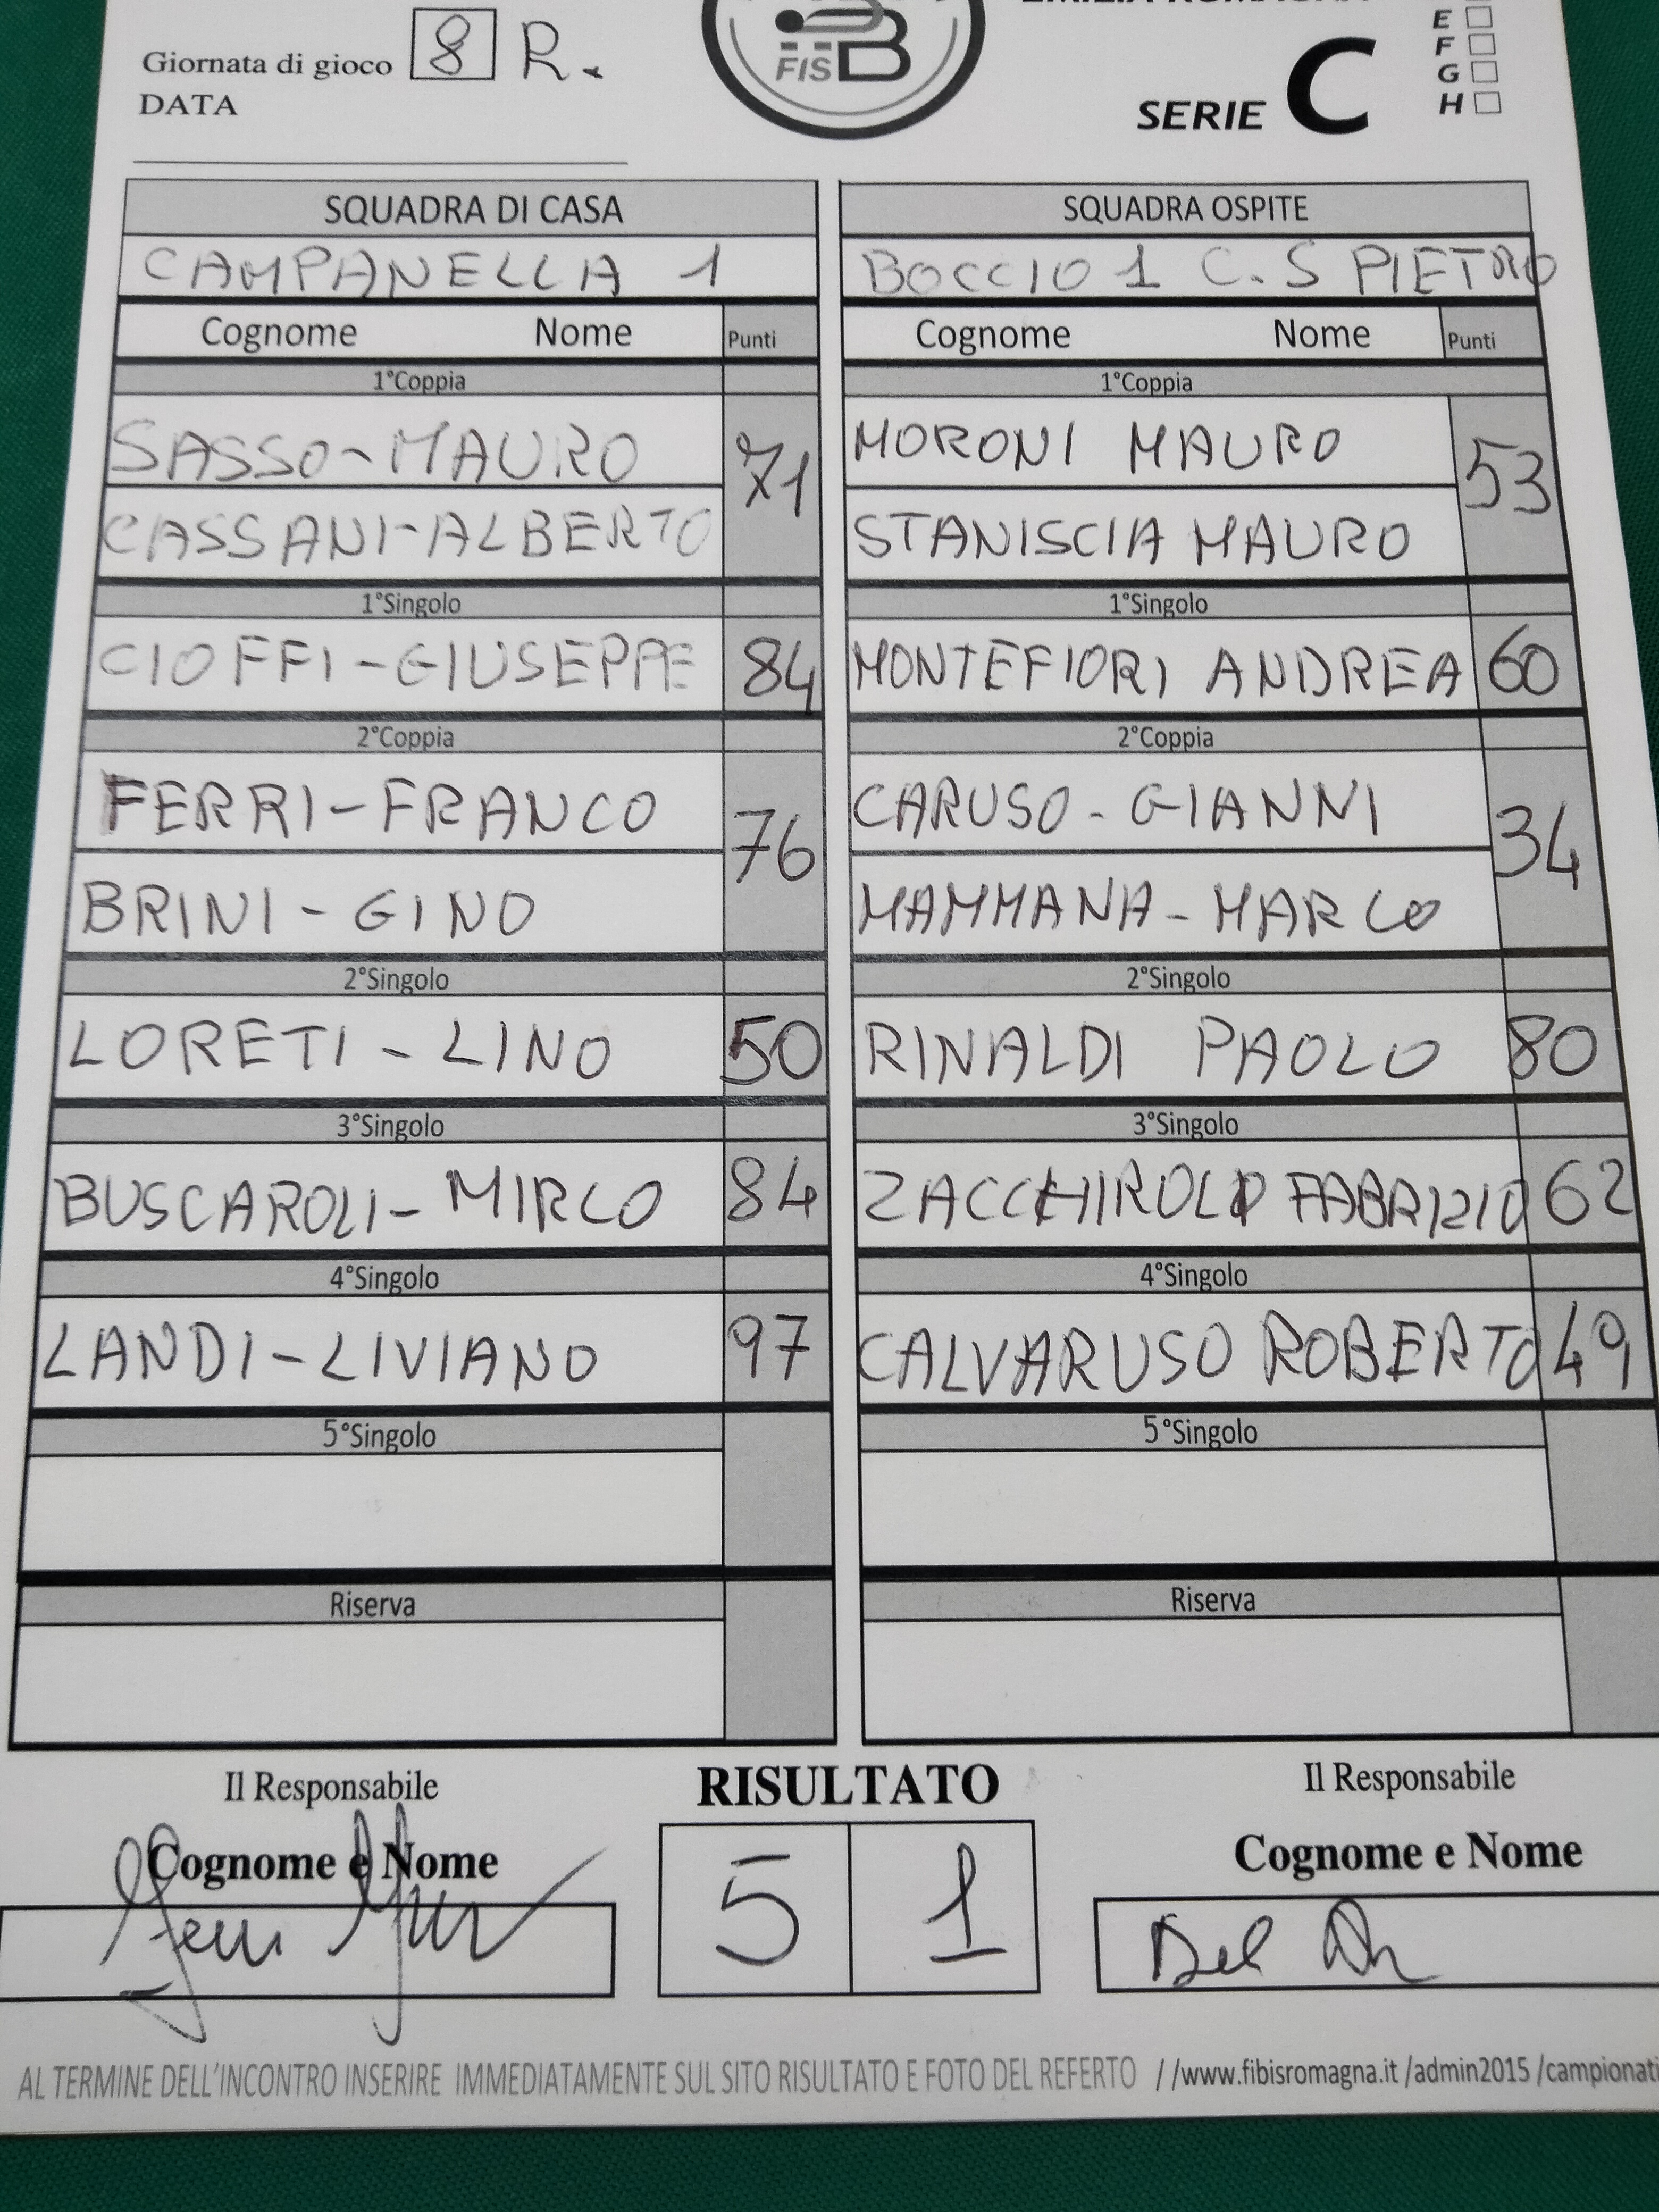 E
F
Giornata di gioco 8 R.
FISB
G
DATA
SERIE C
H
SQUADRA DI CASA SQUADRA OSPITE
CAMPANELLA 1 BOCCIO 1 C.S PIETRO
Cognome Nome Punti Cognome Nome Punti
1°Coppia 1°Coppia
SASSO-MAURO 71 MORONI MAURO 53
CASSANI-ALBERTO STANISCIA MAURO
1°Singolo 1°Singolo
CIOFFI-GIUSEPPE 84 MONTEFIORI ANDREA 60
2°Coppia 2°Coppia
FERRI-FRANCO 76 CARUSO-GIANNI 34
BRINI-GINO MAMMANA-MARCO
2°Singolo 2°Singolo
LORETI-LINO 50 RINALDI PAOLO 80
3°Singolo 3°Singolo
BUSCAROLI-MIRCO 84 ZACCHIROLO FABRIZIO 62
4°Singolo 4°Singolo
LANDI-LIVIANO 97 CALVARUSO ROBERTO 49
5°Singolo 5°Singolo
Riserva Riserva
Il Responsabile RISULTATO Il Responsabile
Cognome e Nome Cognome e Nome
5 1
AL TERMINE DELL'INCONTRO INSERIRE IMMEDIATAMENTE SUL SITO RISULTATO E FOTO DEL REFERTO //www.fibisromagna.it /admin2015 /campionati